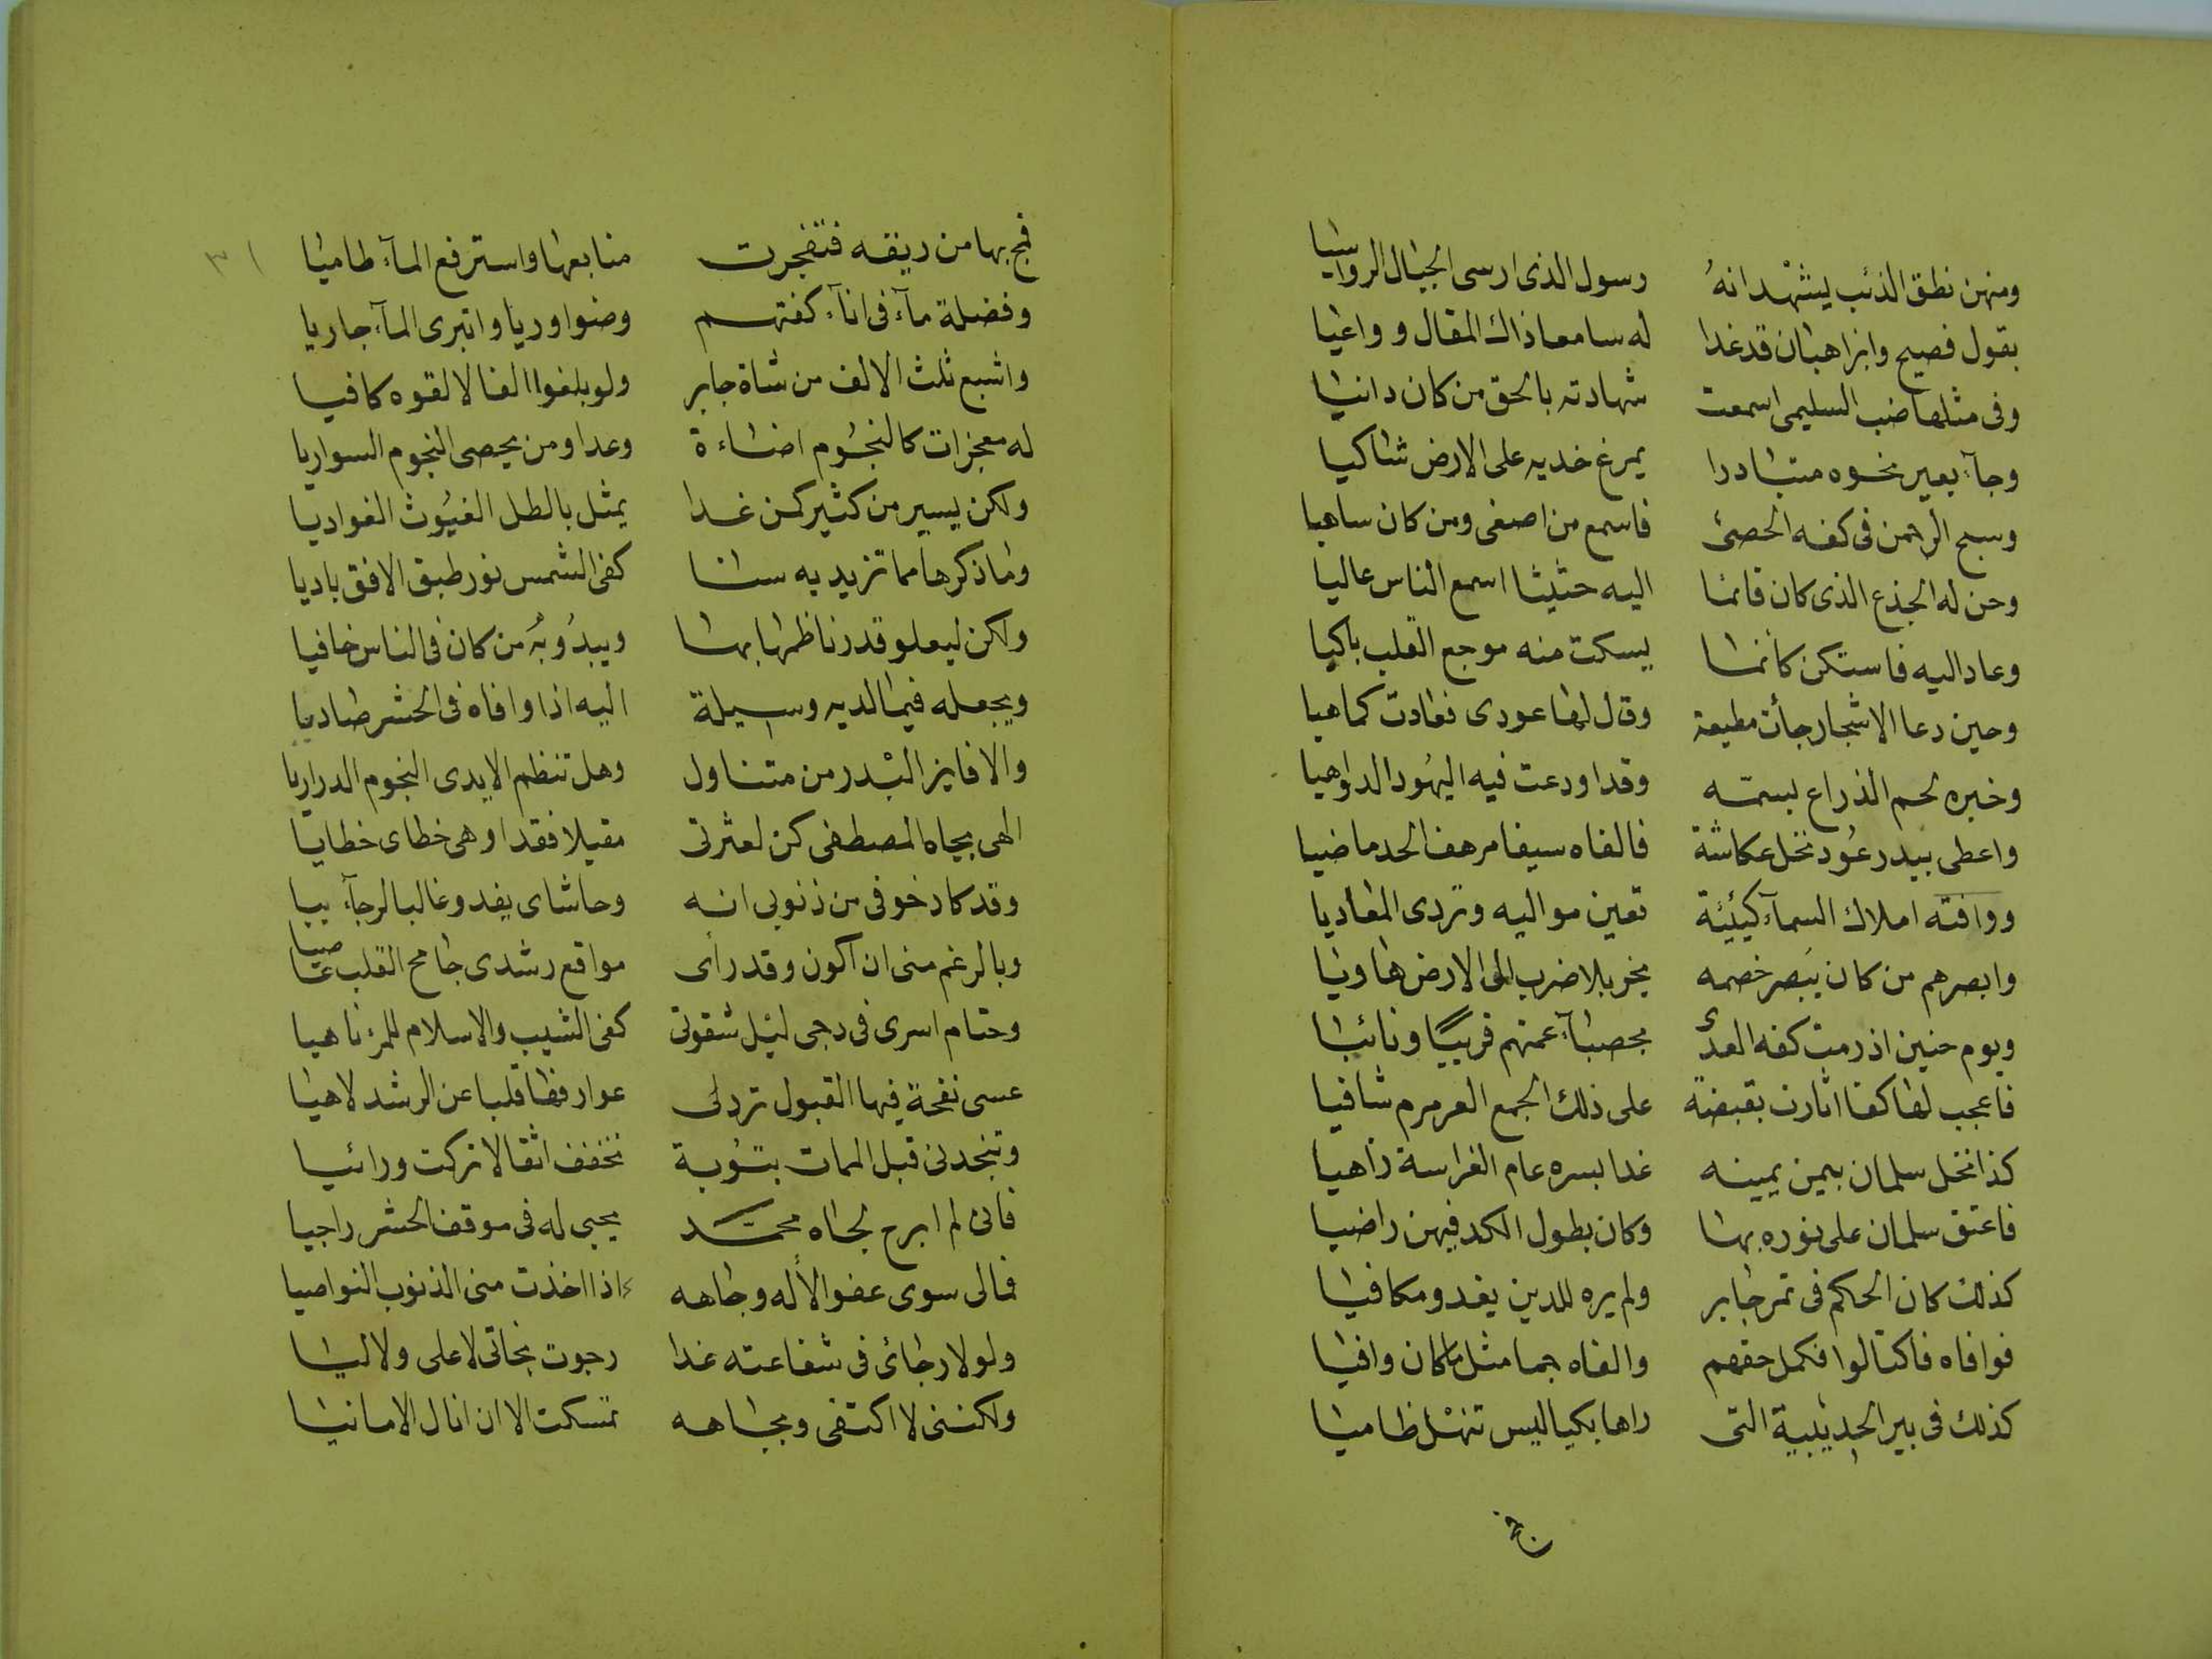 ومنهن نطق الذئب يشهد انهُ رسول الذى ارسى الجبال الرواسيا
بقول فصيح وابن اهبان قد غدا له سامعا ذاك المقال وواعيا
وفى مثلها ضب السليمى اسمعت شهادته بالحق من كان دانيا
وجآء بعير نحوه متبادرا يمرغ خديه على الارض شاكيا
وسبح الرحمن فى كفه الحصى فاسمع من اصغى ومن كان ساهيا
وحن له الجذع الذى كان قائما اليه حثيثا اسمع الناس عاليا
وعاد اليه فاستكن كأنما يسكت منه موجع القلب باكيا
وحين دعا الاشجار جأت مطيعة وقال لها عودى فعادت كماهيا
وخبره لحم الذراع بسمه وقد اودعت فيه اليهُود الدواهيا
واعطى ببدر عُود نخل عكاشة فالفاه سيفا مرهف الحد ماضيا
ووافته املاك السمآء كيئية تعين مواليه وتردى المعاديا
وابصرهم من كان يبصر خصمه يخر بلا ضرب الى الارض هاويا
ويوم حنين اذ رمت كفه العدى بحصبآء عمتهم قريبًا ونائيا
فاعجب لها كفا اثارت بقبضة على ذلك الجمع العرمرم شافيا
كذا نخل سلمان بيمن يمينه غدا بسره عام الغراسة زاهيا
فاعتق سلمان على نوره بها وكان بطول الكد فيهن راضيا
كذلك كان الحكم فى تمر جابر ولم يره للدين يغدو مكافيا
فوافاه فاكتالوا فكمل حقهم والفاه جما مثل ما كان وافيا
كذلك فى بير الحديبية التى راها بكيا ليس تنهل ظاميا
فج
٣١
فمج بها من ريقه فتفجرت منابعها واسترفع المآء طاميا
وفضلة مآء فى انآء كفتهم وضوا وريا وانبرى المآء جاريا
واشبع ثلث الالف من شاة جابر ولو بلغوا الفا لالقوه كافيا
له معجزات كالنجُوم اضاءة وعدا ومن يحصى النجوم السواريا
ولكن يسير من كثير كمن غدا يمثل بالطل الغيُوث الغواديا
وما ذكرها مما تزيد به سنا كفى الشمس نور طبق الافق باديا
ولكن ليعلو قدر ناظمها بها ويبدُو بُه من كان فى الناس خافيا
ويجعله فيما لديه وسيلة اليه اذا وافاه فى الحشر صاديا
والا فاين البْدر من متناول وهل تنظم الايدى النجوم الدراريا
الهى بجاه المصطفى كن لعثرتى مقيلا فقد اوهى خطاى خطايا
وقد كاد خوفى من ذنوبى انه وحاشاى يغدو غالبا لرجآء بيا
وبالرغم منى ان اكون وقد رأى مواقع رشدى جامح القلب عاصيا
وحتام اسرى فى دجى ليل شقوتى كفى الشيب والاسلام للمرء ناهيا
عسى نفحة فيها القبول تردلى عوارفها قلبا عن الرشد لاهيا
وتنجدنى قبل الممات بتوُبة تخفف اثقالا تركت ورائيا
فانى لم ابرح لجاه محمد يحبى له فى موقف الحشر راجيا
فمالى سوى عفو الأله وجاهه اذا اخذت منى الذنوب النواصيا
ولولا رجائى فى شفاعته غدا رجوت نجاتى لا على ولا ليا
ولكننى لا اكتفى وبجاهه تمسكت الا ان انال الامانيا